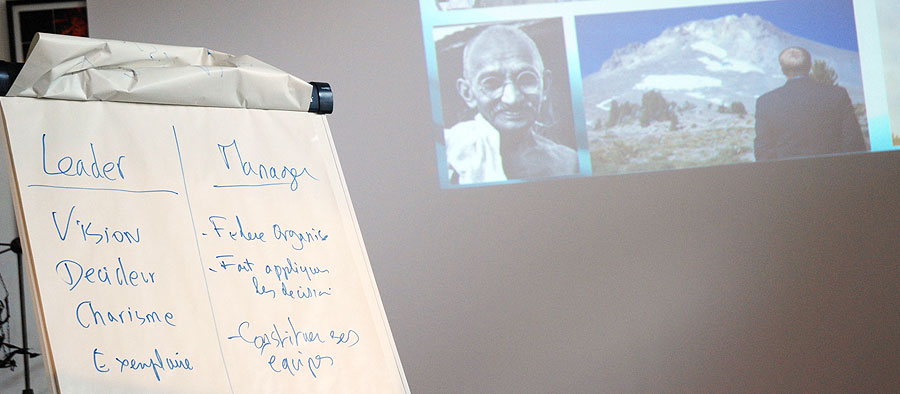 Leader
Vision
Decideur
Charisme
Exemplaire
Manager
- organise
- Fait appliquer
les decision
- Constituer ses
equipes